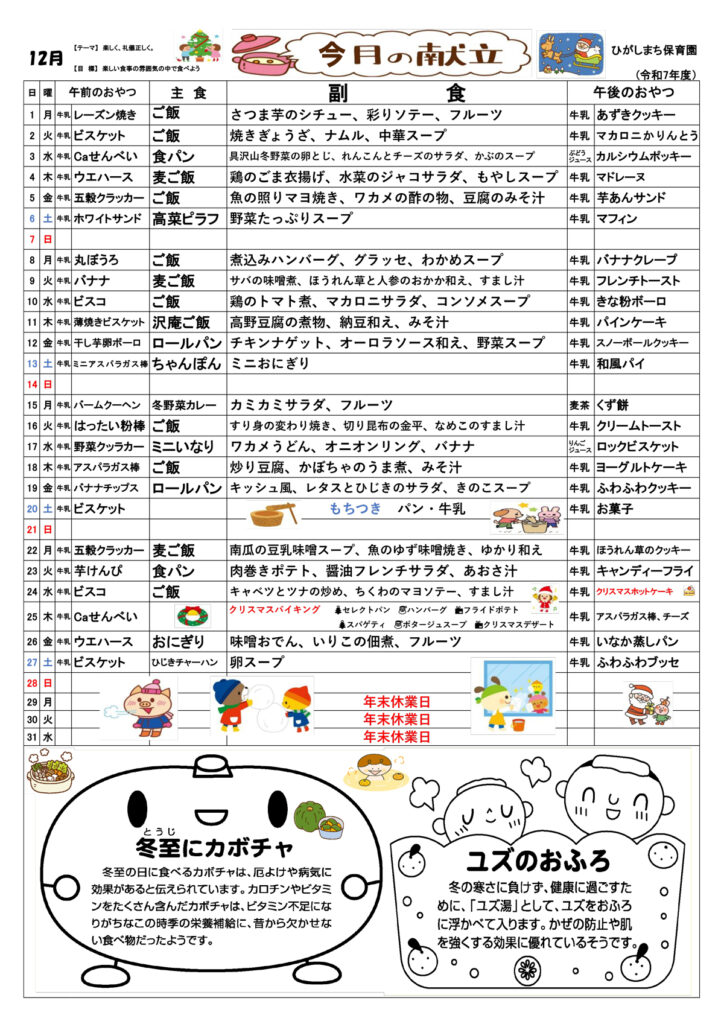 12月
【テーマ】 楽しく、礼儀正しく。
【目 標】 楽しい食事の雰囲気の中で食べよう
今月の献立
ひがしまち保育園
(令和7年度)
日 曜 午前のおやつ 主 食 副 食 午後のおやつ
1 月 牛乳 レーズン焼き ご飯 さつま芋のシチュー、彩りソテー、フルーツ 牛乳 あずきクッキー
2 火 牛乳 ビスケット ご飯 焼きぎょうざ、ナムル、中華スープ 牛乳 マカロニかりんとう
3 水 牛乳 Caせんべい 食パン 具沢山冬野菜の卵とじ、れんこんとチーズのサラダ、かぶのスープ ぶどうジュース カルシウムポッキー
4 木 牛乳 ウエハース 麦ご飯 鶏のごま衣揚げ、水菜のジャコサラダ、もやしスープ 牛乳 マドレーヌ
5 金 牛乳 五穀クラッカー ご飯 魚の照りマヨ焼き、ワカメの酢の物、豆腐のみそ汁 牛乳 芋あんサンド
6 土 牛乳 ホワイトサンド 高菜ピラフ 野菜たっぷりスープ 牛乳 マフィン
7 日
8 月 牛乳 丸ぼうろ ご飯 煮込みハンバーグ、グラッセ、わかめスープ 牛乳 バナナクレープ
9 火 牛乳 バナナ 麦ご飯 サバの味噌煮、ほうれん草と人参のおかか和え、すまし汁 牛乳 フレンチトースト
10 水 牛乳 ビスコ ご飯 鶏のトマト煮、マカロニサラダ、コンソメスープ 牛乳 きな粉ボーロ
11 木 牛乳 薄焼きビスケット 沢庵ご飯 高野豆腐の煮物、納豆和え、みそ汁 牛乳 パインケーキ
12 金 牛乳 干し芋卵ボーロ ロールパン チキンナゲット、オーロラソース和え、野菜スープ 牛乳 スノーボールクッキー
13 土 牛乳 ミニアスパラガス棒 ちゃんぽん ミニおにぎり 牛乳 和風パイ
14 日
15 月 牛乳 バームクーヘン 冬野菜カレー カミカミサラダ、フルーツ 麦茶 くず餅
16 火 牛乳 はったい粉棒 ご飯 すり身の変わり焼き、切り昆布の金平、なめこのすまし汁 牛乳 クリームトースト
17 水 牛乳 野菜クッラカー ミニいなり ワカメうどん、オニオンリング、バナナ りんごジュース ロックビスケット
18 木 牛乳 アスパラガス棒 ご飯 炒り豆腐、かぼちゃのうま煮、みそ汁 牛乳 ヨーグルトケーキ
19 金 牛乳 バナナチップス ロールパン キッシュ風、レタスとひじきのサラダ、きのこスープ 牛乳 ふわふわクッキー
20 土 牛乳 ビスケット もちつき パン・牛乳 牛乳 お菓子
21 日
22 月 牛乳 五穀クラッカー 麦ご飯 南瓜の豆乳味噌スープ、魚のゆず味噌焼き、ゆかり和え 牛乳 ほうれん草のクッキー
23 火 牛乳 芋けんぴ 食パン 肉巻きポテト、醤油フレンチサラダ、あおさ汁 牛乳 キャンディーフライ
24 水 牛乳 ビスコ ご飯 キャベツとツナの炒め、ちくわのマヨソテー、すまし汁 牛乳 クリスマスホットケーキ
25 木 牛乳 Caせんべい クリスマスバイキング セレクトパン ハンバーグ フライドポテト 牛乳 アスパラガス棒、チーズ
スパゲティ ポタージュスープ クリスマスデザート
26 金 牛乳 ウエハース おにぎり 味噌おでん、いりこの佃煮、フルーツ 牛乳 いなか蒸しパン
27 土 牛乳 ビスケット ひじきチャーハン 卵スープ 牛乳 ふわふわブッセ
28 日
29 月 年末休業日
30 火 年末休業日
31 水 年末休業日
とうじ
冬至にカボチャ
冬至の日に食べるカボチャは、厄よけや病気に
効果があると伝えられています。カロチンやビタミ
ンをたくさん含んだカボチャは、ビタミン不足にな
りがちなこの時季の栄養補給に、昔から欠かせな
い食べ物だったようです。
ユズのおふろ
冬の寒さに負けず、健康に過ごすた
めに、「ユズ湯」として、ユズをおふろ
に浮かべて入ります。かぜの防止や肌
を強くする効果に優れているそうです。